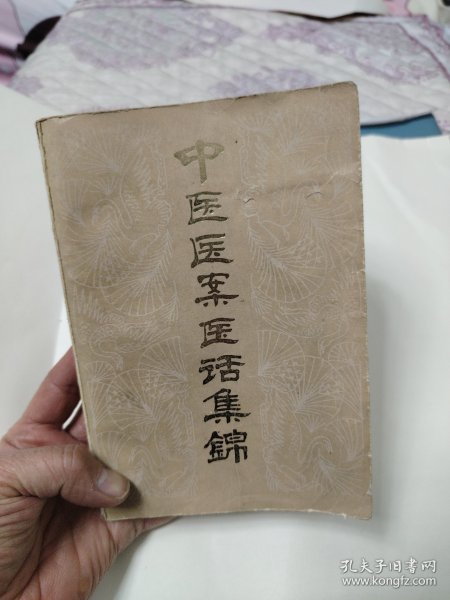 中医医案医话集錦
孔夫子旧书网
www.kongfz.com